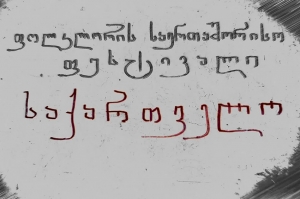 ფოლკლორის საერთაშორისო
ფესტივალი
საქართველო